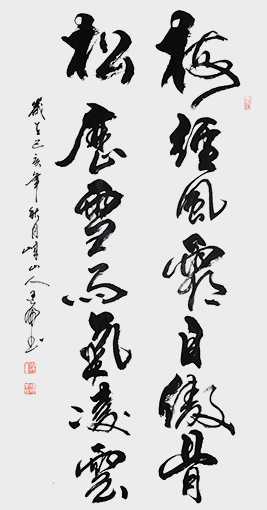 梅經風霜自傲骨
松歷雪雨氣凌雲
歲在己亥年秋月山人書